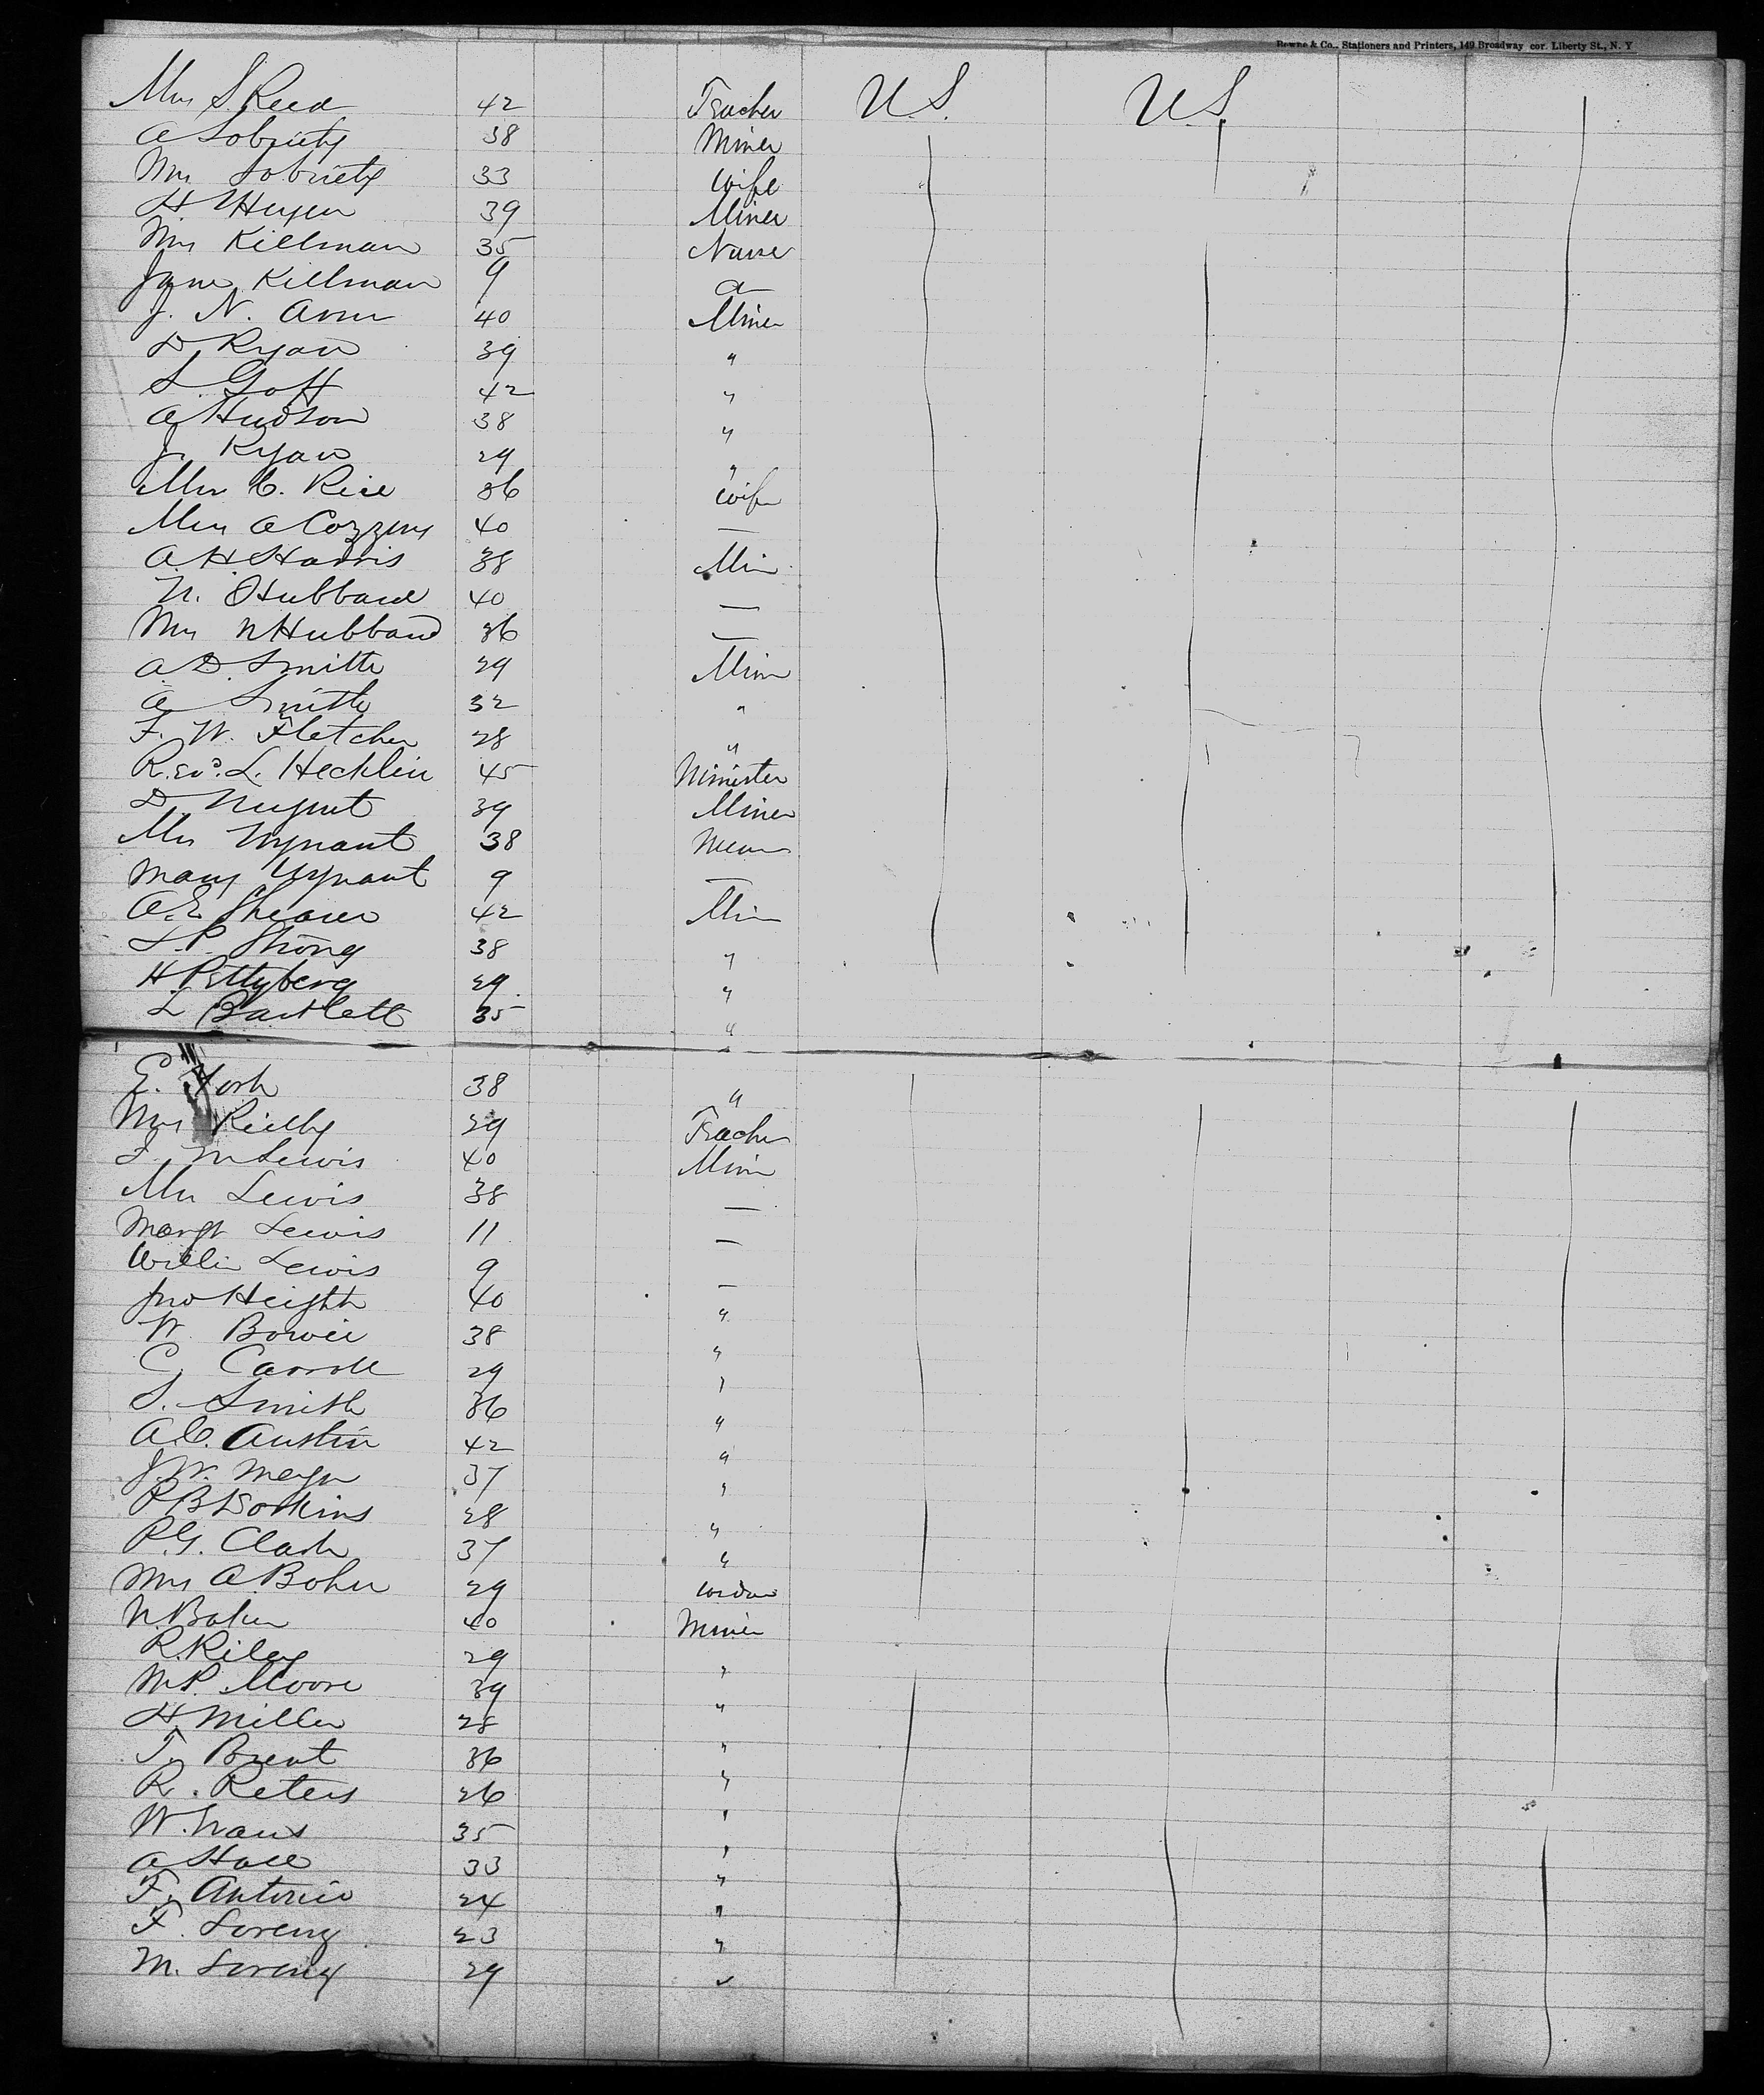 Bowne & Co., Stationers and Printers, 149 Broadway cor. Liberty St., N. Y
Mrs S Reed 42 Teacher U S. U.S.
A Sobriety 38 Miner
Mrs Sobriety 33 Wife
H 39 Miner
Mrs Killman 35 Nurse
Jane Killman 9 a
J. N. 40 Miner
D Ryan 39 "
S. Goff 42 "
A Hudson 38 "
J. Ryan 29 "
Mrs C. Rice 36 wife
Mrs A Cozzens 40 —
A. H Harris 38 Min
N. Hubbard 40 —
Mrs N Hubbard 36 —
A. D. Smith 29 Min
A Smith 32 "
F. W. Fletcher 28 "
Rev. L. Hecklin 45 Minister
D. Nugent 39 Miner
Mrs 38
Mary 9 —
A. E Shearer 42 Min
L. P. Strong 38 "
H. Pettyberg 29. "
L Bartlett 35 "
E. York 38 "
Mrs Reilly 29 Teacher
J. M Lewis 40 Min
Mrs Lewis 38 —
Margt Lewis 11 —
Willie Lewis 9 —
Jno Height 40 "
W. Bowie 38 "
C, Carroll 29 "
S. Smith 36 "
A. C. Austin 42 "
J. W. 37 "
P B Dorkins 28 "
P. G. Clark 37 "
Mrs A. Baker 29 widow
N. Baker 40 Miner
R. Riley 29 "
M. P. Moore 39 "
H Miller 28 "
T. Brent 36 "
R. Peters 26 "
W. 35 "
A Hall 33 "
F. Antonio 24 "
F. Lorenz 23 "
M. Lorenz 29 "